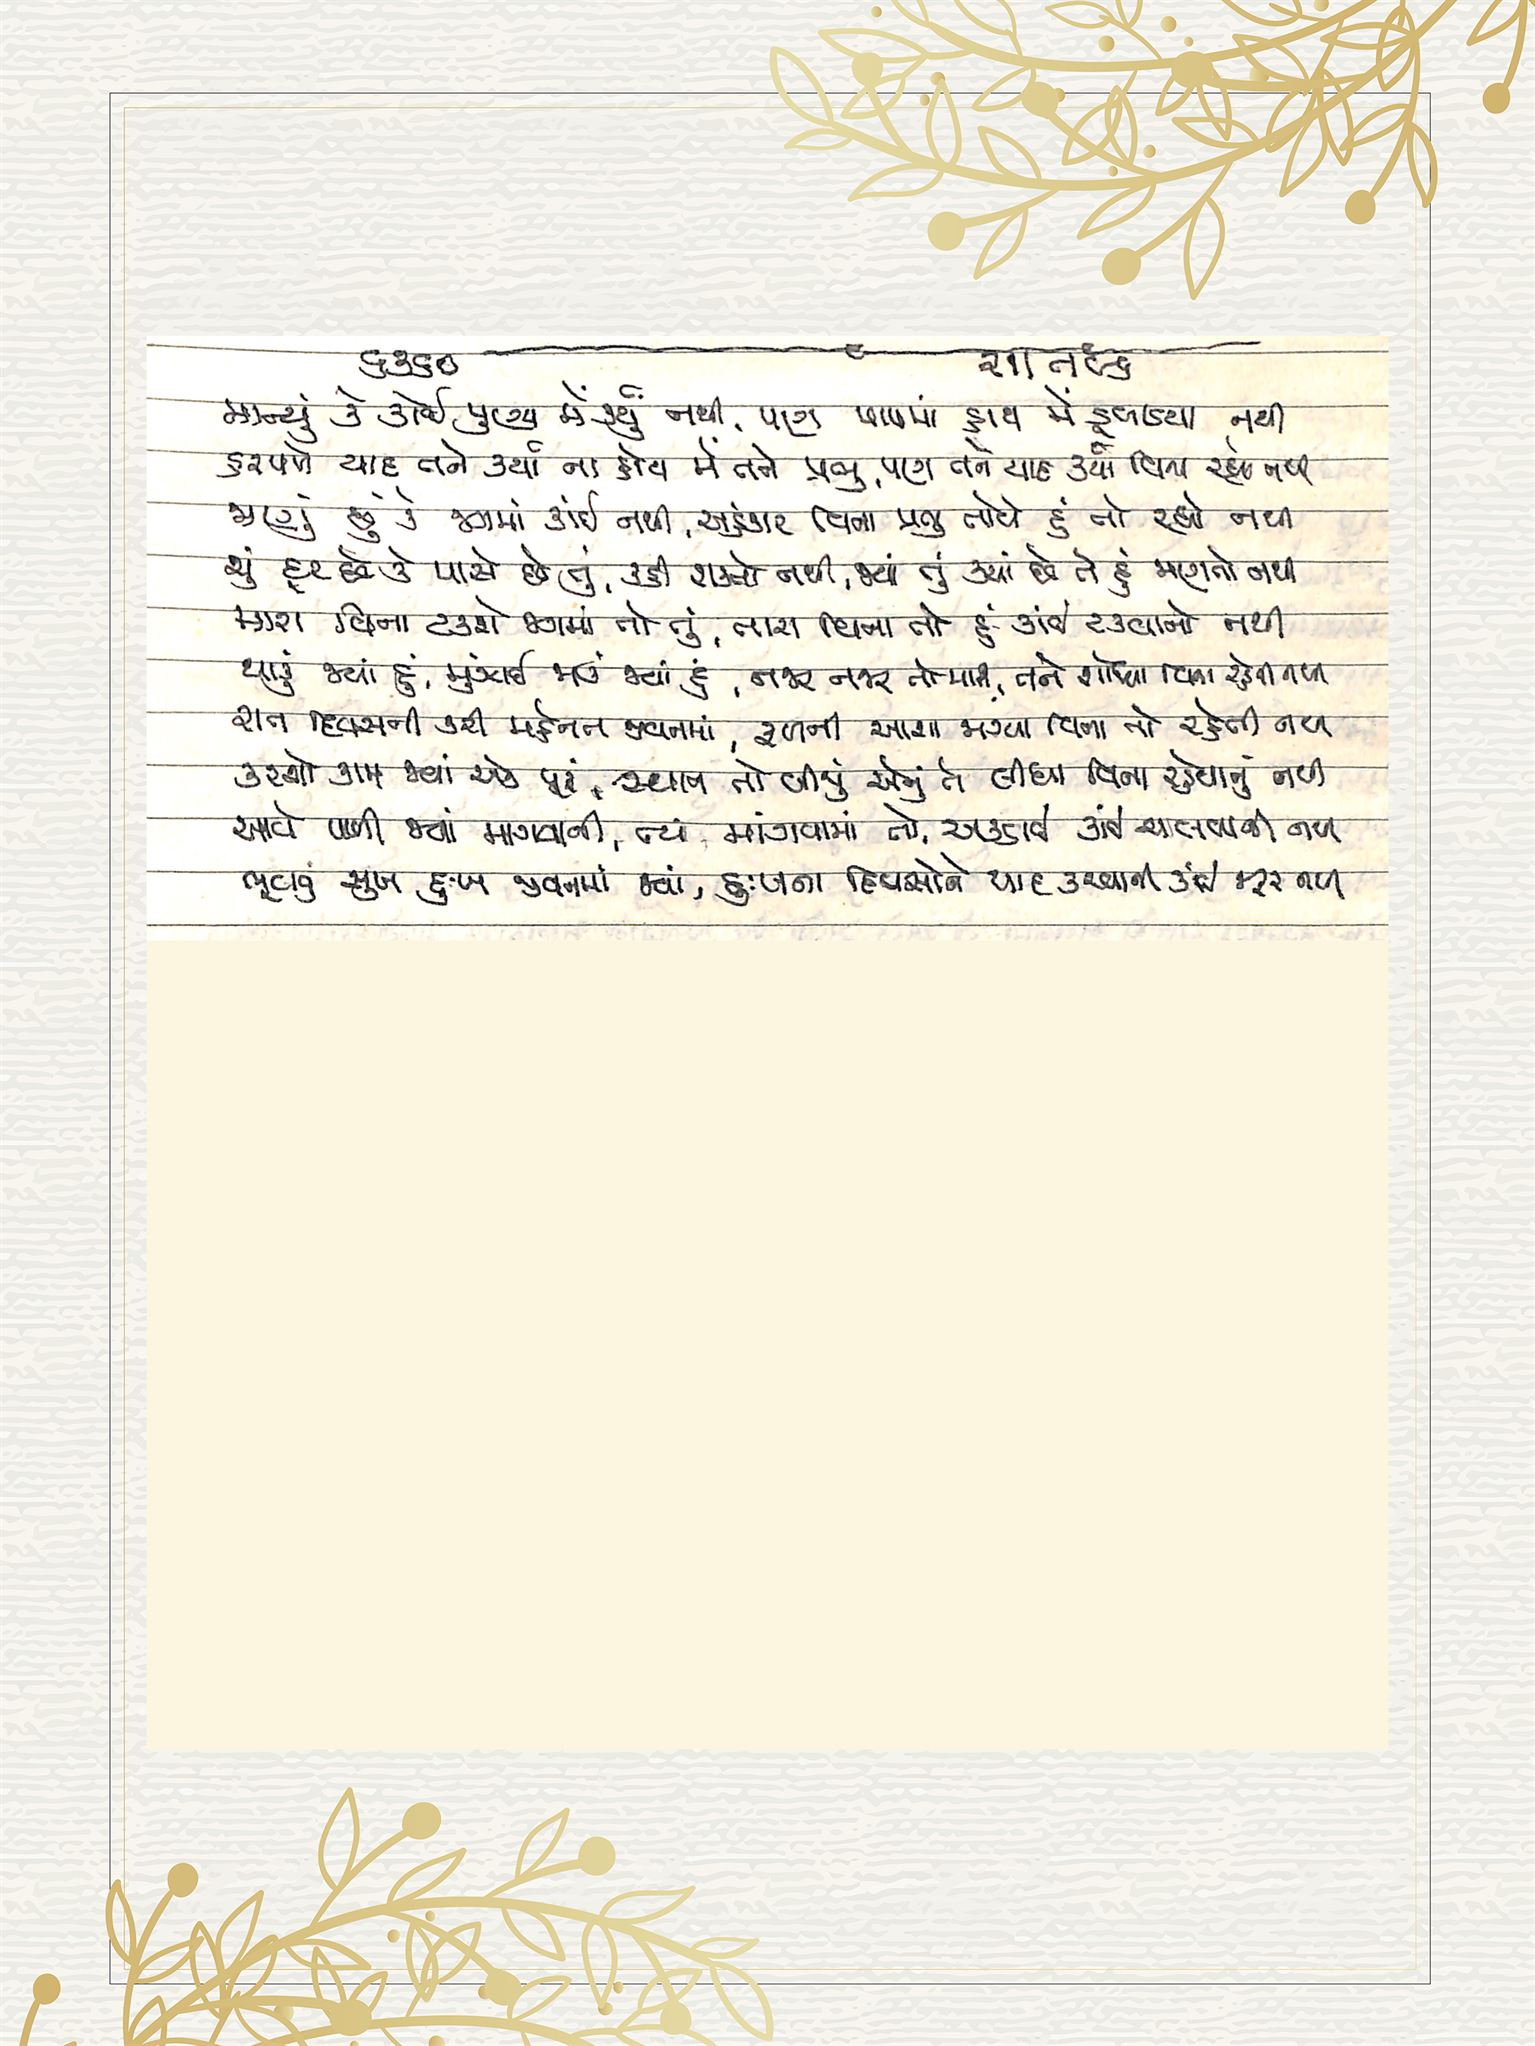 ૬૩૬૦
માન્યું કે કોઈ પુણ્ય મેં કર્યું નથી, પણ પાપમાં હાથ મેં ડૂબાડયા નથી
હરપળે યાદ તને કર્યા ના હોય મેં તને પ્રભુ, પણ તને યાદ કર્યા વિના રહ્યો નથી
જાણું છું કે જગમાં કાંઈ નથી, અહંકાર વિના પ્રભુ તોયે હું તો રહ્યો નથી
શું દૂર છે કે પાસે છે તું, કહી શક્તો નથી, જ્યાં તું ક્યાં છે તે હું જાણતો નથી
મારા વિના ટકશે જગમાં તો તું, તારા વિના તો હું કાંઈ ટકવાનો નથી
થાકું જ્યાં હું, મુંઝાઈ જાઉં જ્યાં હું, નજર નજર તો મારી, તને શોધ્યા વિના રહેતી નથી
રાત દિવસની કરી મહેનત જીવનમાં, ફળની આશા જાગ્યા વિના તો રહેતી નથી
કરશો કામ જ્યાં એક પૂરું, સ્થાન તો બીજું એનું તે લીધા વિના રહેવાનું નથી
આવે પાળી જ્યાં માગવાની, ત્યાં માંગવામાં તો, અચકાઈ કાંઈ ચાલવાની નથી
ભૂલાવું સુખ દુઃખ જીવનમાં જ્યાં, દુઃખના દિવસોને યાદ કરવાની કાંઈ જરૂર નથી